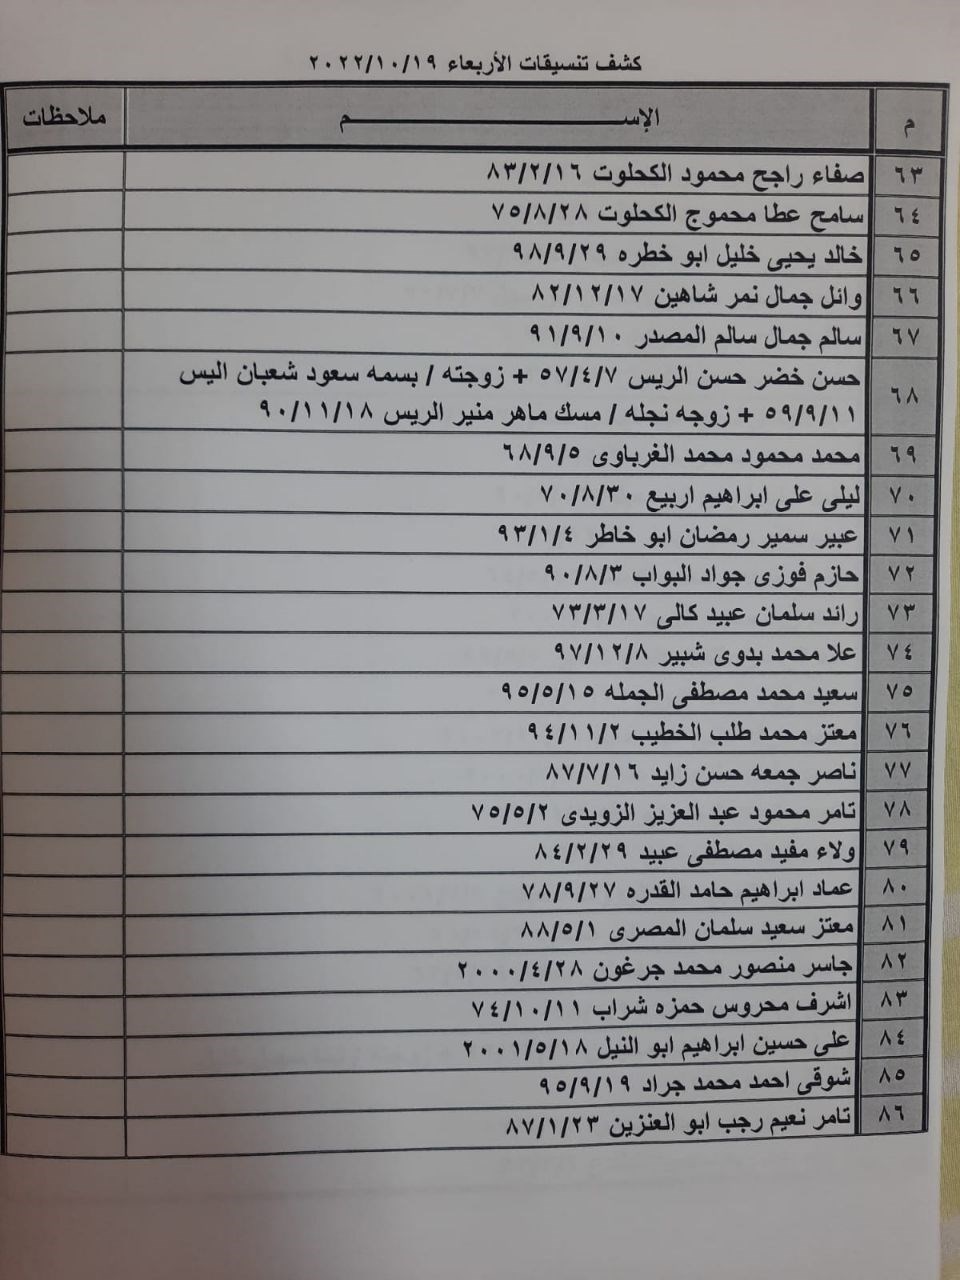 كشف تنسيقات الأربعاء ٢٠٢٢/١٠/١٩
م الإســــــــم ملاحظات
٦٣ صفاء راجح محمود الكحلوت ٨٣/٢/١٦
٦٤ سامح عطا محموج الكحلوت ٧٥/٨/٢٨
٦٥ خالد يحيى خليل ابو خطره ٩٨/٩/٢٩
٦٦ وائل جمال نمر شاهين ٨٢/١٢/١٧
٦٧ سالم جمال سالم المصدر ٩١/٩/١٠
٦٨ حسن خضر حسن الريس ٥٧/٤/٧ + زوجته / بسمه سعود شعبان اليس
٥٩/٩/١١ + زوجه نجله / مسك ماهر منير الريس ٩٠/١١/١٨
٦٩ محمد محمود محمد الغرباوى ٦٨/٩/٥
٧٠ ليلى على ابراهيم اربيع ٧٠/٨/٣٠
٧١ عبير سمير رمضان ابو خاطر ٩٣/١/٤
٧٢ حازم فوزى جواد البواب ٩٠/٨/٣
٧٣ رائد سلمان عبيد كالى ٧٣/٣/١٧
٧٤ علا محمد بدوى شبير ٩٧/١٢/٨
٧٥ سعيد محمد مصطفى الجمله ٩٥/٥/١٥
٧٦ معتز محمد طلب الخطيب ٩٤/١١/٢
٧٧ ناصر جمعه حسن زايد ٨٧/٧/١٦
٧٨ تامر محمود عبد العزيز الزويدى ٧٥/٥/٢
٧٩ ولاء مفيد مصطفى عبيد ٨٤/٢/٢٩
٨٠ عماد ابراهيم حامد القدره ٧٨/٩/٢٧
٨١ معتز سعيد سلمان المصرى ٨٨/٥/١
٨٢ جاسر منصور محمد جرغون ٢٠٠٠/٤/٢٨
٨٣ اشرف محروس حمزه شراب ٧٤/١٠/١١
٨٤ على حسين ابراهيم ابو النيل ٢٠٠١/٥/١٨
٨٥ شوقى احمد محمد جراد ٩٥/٩/١٩
٨٦ تامر نعيم رجب ابو العنزين ٨٧/١/٢٣